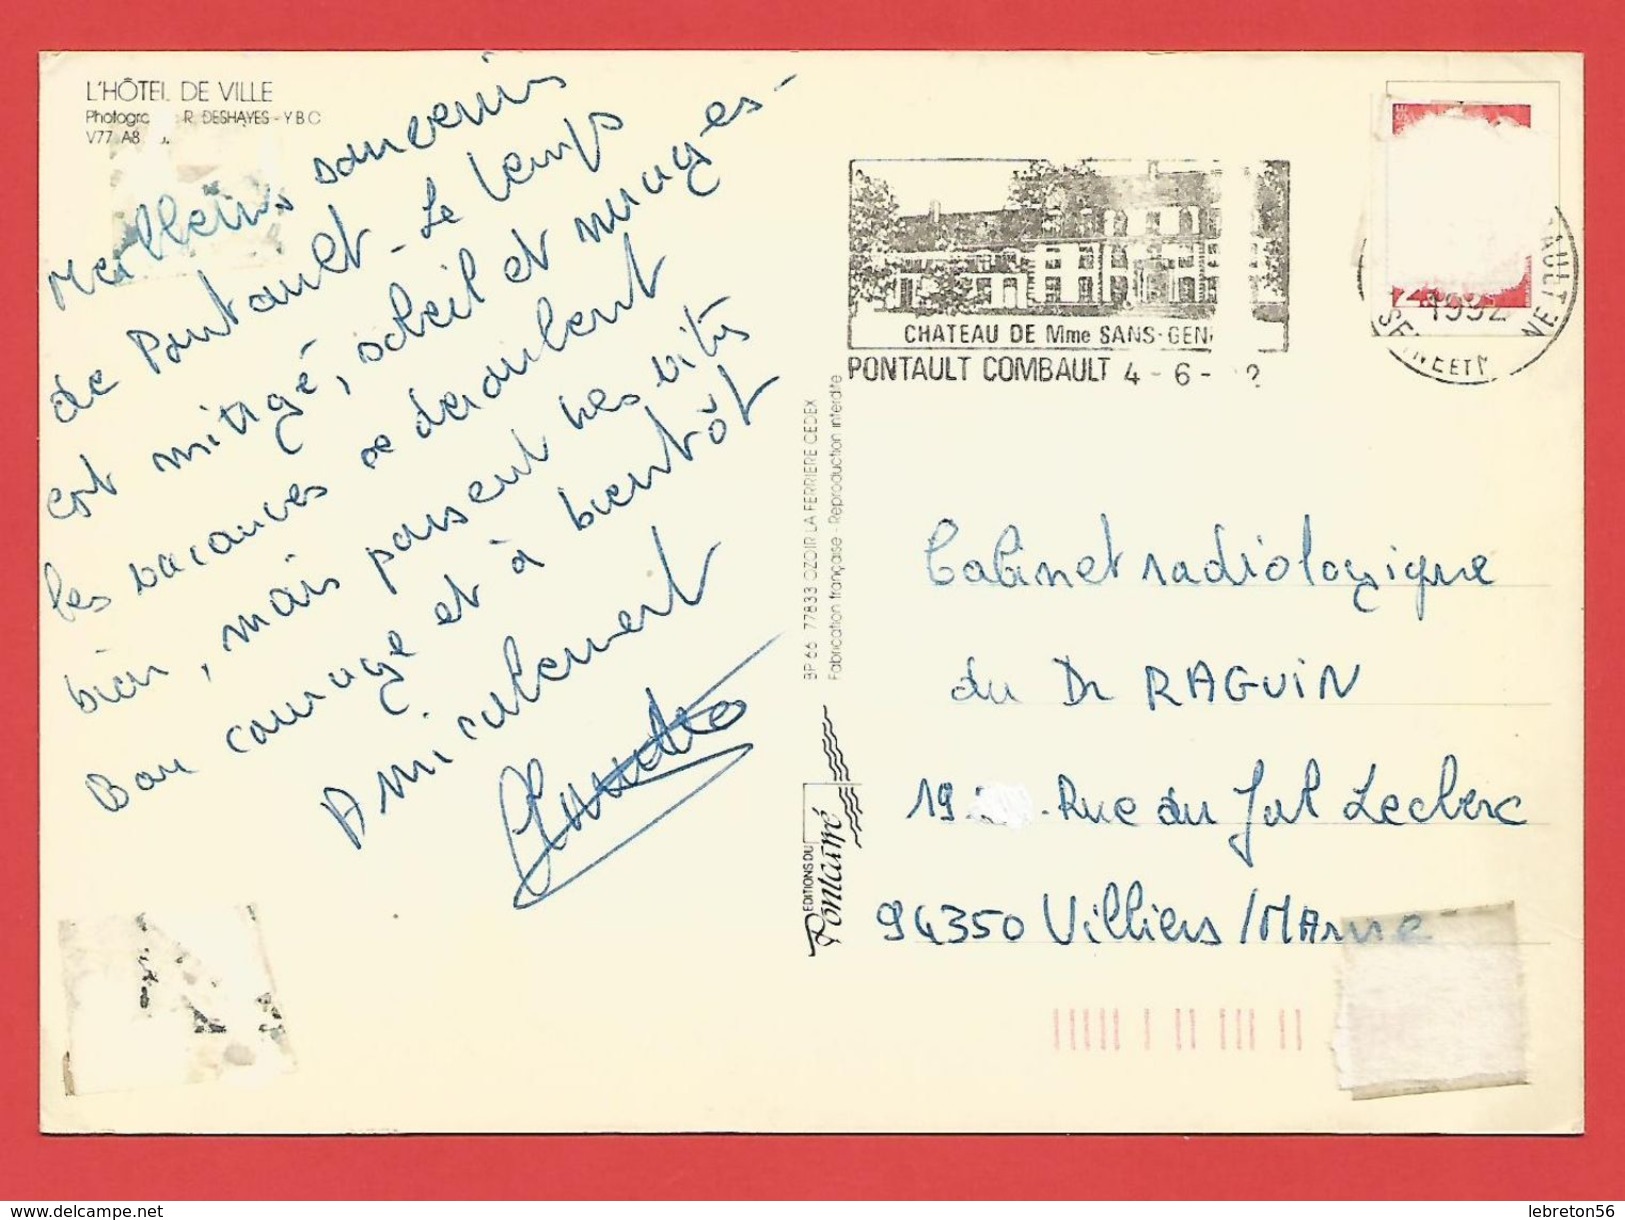 L'HÔTEL DE VILLE
R. DESHAYES - YBC
V77 A8
Meilleurs souvenirs
de Pontault - Le temps
est mitigé, soleil et nuages -
les vacances se déroulent
bien, mais passent très vite
Bon courage et à bientôt
Amicalement
CHATEAU DE Mme SANS-GEN
PONTAULT COMBAULT 4 - 6 - 2
1992
SEINE ET MARNE
BP 66 77833 OZOIR LA FERRIERE CEDEX
Fabrication française - Reproduction interdite
EDITIONS DU
Pontcarré
Cabinet radiologique
du Dr RAGUIN
19 Rue du Gal Leclerc
94350 Villiers /MArne
https://www.delcampe.net
lebreton56